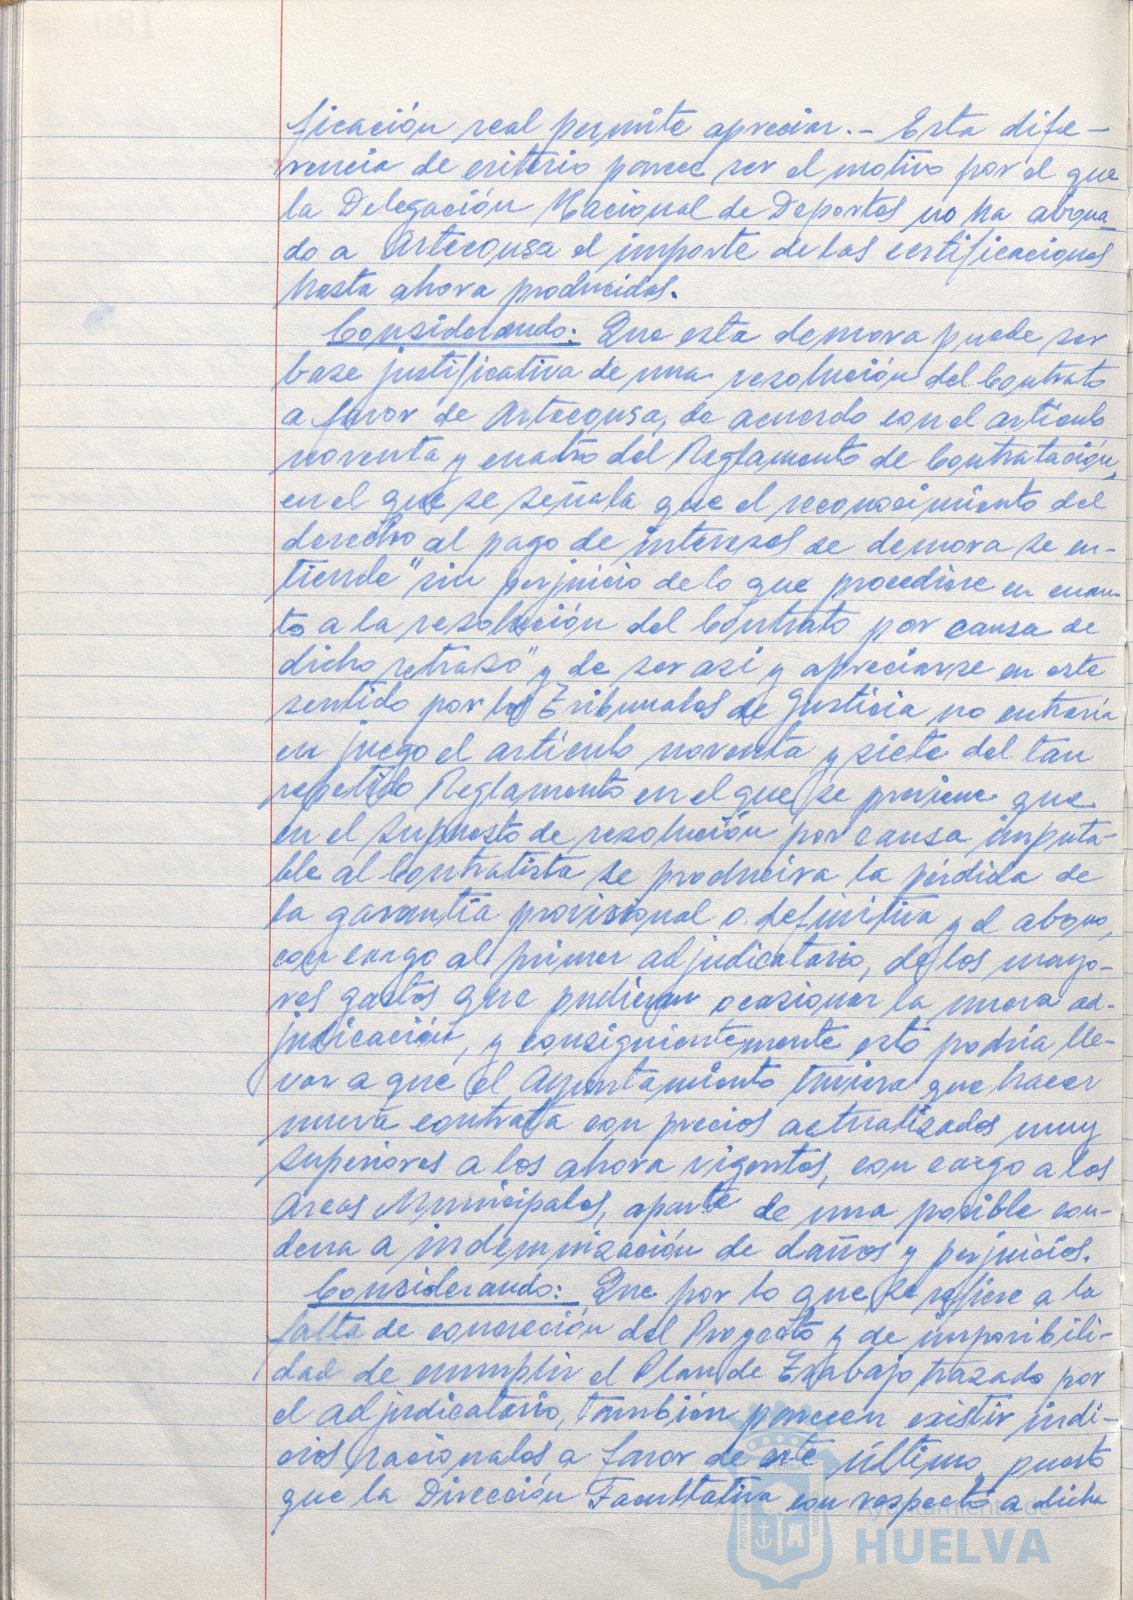 ficación real permite apreciar.- Esta dife-
rencia de criterio parece ser el motivo por el que
la Delegación Nacional de Deportes no ha abona_
do a Artecqusa el importe de las certificaciones
hasta ahora producidas.
Considerando: Que esta demora puede ser
base justificativa de una resolución del Contrato
a favor de Artecqusa, de acuerdo con el artículo
noventa y cuatro del Reglamento de Contratación,
en el que se señala que el reconocimiento del
derecho al pago de intereses de demora se en-
tiende "sin perjuicio de lo que procediese en cuan-
to a la resolución del Contrato por causa de
dicho retraso" y de ser así y apreciarse en este
sentido por los Tribunales de Justicia no entraría
en juego el artículo noventa y siete del tan
repetido Reglamento en el que se previene que
en el supuesto de resolución por causa imputa-
ble al Contratista se producirá la pérdida de
la garantía provisional o definitiva y el abono,
con cargo al primer adjudicatario, de los mayo-
res gastos que pudieran ocasionar la nueva ad-
judicación, y consiguientemente esto podría lle-
var a que el Ayuntamiento tuviera que hacer
nueva contrata con precios actualizados muy
superiores a los ahora vigentes, con cargo a las
Arcas Municipales, aparte de una posible con-
dena a indemnización de daños y perjuicios.
Considerando: Que por lo que se refiere a la
falta de concreción del Proyecto y de imposibili-
dad de cumplir el Plan de Trabajo trazado por
el adjudicatario, también parecen existir indi-
cios racionales a favor de este último, puesto
que la Dirección Facultativa con respecto a dicha
Ayuntamiento de
HUELVA